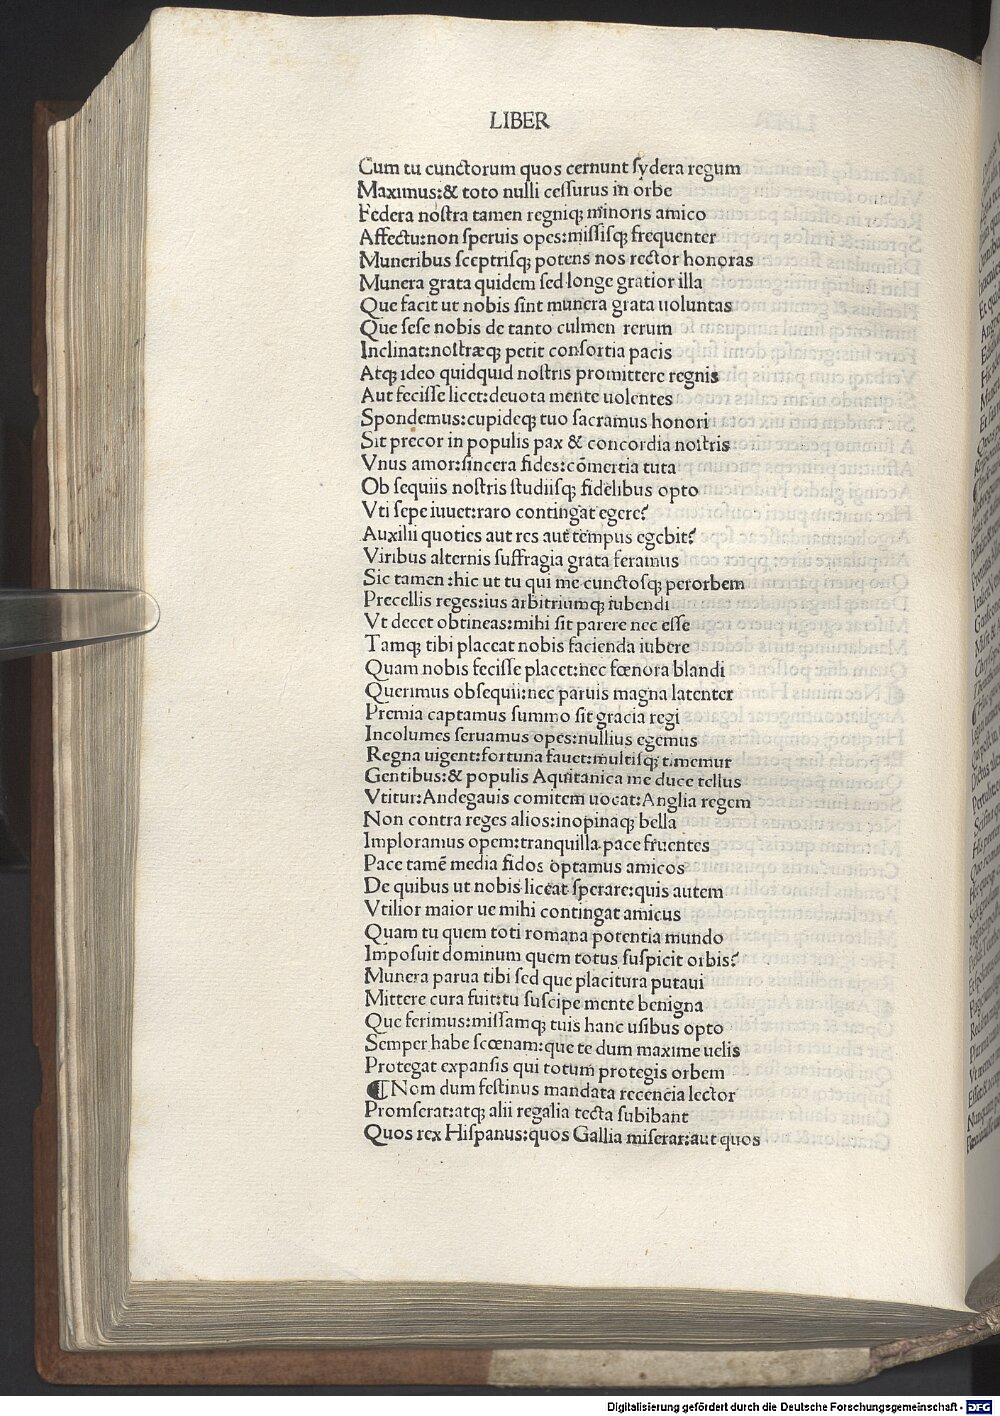 LIBER
Cum tu cunctorum quos cernunt ſydera regum
Maximus:& toto nulli ceſſurus in orbe
Federa noſtra tamen regniqꝫ minoris amico
Affectu:non ſperuis opes:miſſiſqꝫ frequenter
Muneribus ſceptriſqꝫ potens nos rector honoras
Munera grata quidem ſed longe gratior illa
Que facit ut nobis ſint munera grata uoluntas
Que ſeſe nobis de tanto culmen rerum
Inclinat:noſtræqꝫ petit conſortia pacis
Atqꝫ ideo quidquid noſtris promittere regnis
Aut feciſſe licet:deuota mente uolentes
Spondemus:cupideqꝫ tuo ſacramus honori
Sit precor in populis pax & concordia noſtris
Vnus amor:ſincera fides:cōmertia tuta
Ob ſequiis noſtris ſtudiiſqꝫ fidelibus opto
Vti ſepe iuuet:raro contingat egere?
Auxilii quoties aut res aut tempus egebit?
Viribus alternis ſuffragia grata feramus
Sic tamen:hic ut tu qui me cunctoſqꝫ perorbem
Precellis reges:ius arbitriumqꝫ iubendi
Vt decet obtineas:mihi ſit parere nec eſſe
Tamqꝫ tibi placeat nobis facienda iubere
Quam nobis feciſſe placet:nec fœnora blandi
Querimus obſequii:nec paruis magna latenter
Premia captamus ſummo ſit gracia regi
Incolumes ſeruamus opes:nullius egemus
Regna uigent:fortuna fauet:multiſqꝫ timemur
Gentibus:& populis Aquitanica me duce tellus
Vtitur:Andegauis comitem uocat:Anglia regem
Non contra reges alios:inopinaqꝫ bella
Imploramus opem:tranquilla pace fruentes
Pace tamē media fidos optamus amicos
De quibus ut nobis liceat ſperare:quis autem
Vtilior maior ue mihi contingat amicus
Quam tu quem toti romana potentia mundo
Impoſuit dominum quem totus ſuſpicit orbis?
Munera parua tibi ſed que placitura putaui
Mittere cura fuit:tu ſuſcipe mente benigna
Que ferimus:miſſamqꝫ tuis hanc uſibus opto
Semper habe ſcœnam:que te dum maxime uelis
Protegat expanſis qui totum protegis orbem
¶ Nom dum feſtinus mandata recencia lector
Promſerat:atqꝫ alii regalia tecta ſubibant
Quos rex Hiſpanus:quos Gallia miſerar:aut quos
Digitalisierung gefördert durch die Deutsche Forschungsgemeinschaft - DFG